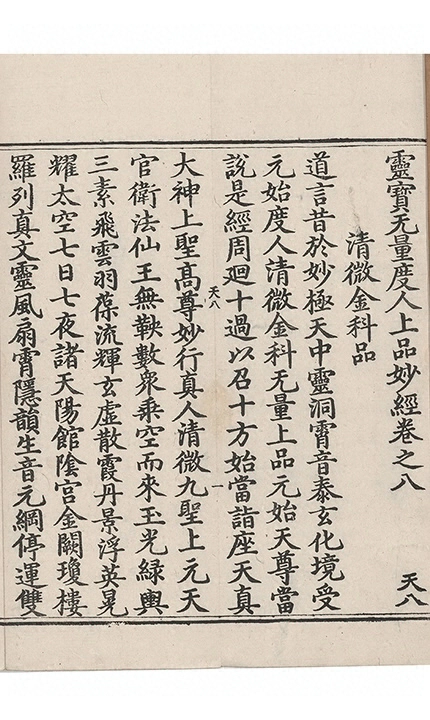 靈寶无量度人上品妙經卷之八
天八
清微金科品
道言昔於妙極天中靈洞霄音泰玄化境受
元始度人清微金科无量上品元始天尊當
說是經周迴十過以召十方始當詣座天真
天八
一
大神上聖髙尊妙行真人清微九聖上元天
官衛法仙王無鞅數衆乘空而來玉光緑輿
三素飛雲羽葆流輝玄虛散霞丹景浮英晃
耀太空七日七夜諸天陽館陰宫金闕瓊樓
羅列真文靈風扇霄隱韻生音元綱停運雙